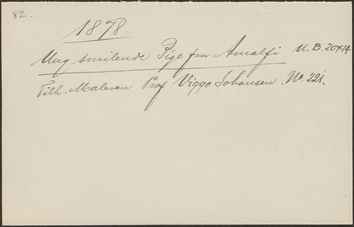 82.
1878.
Ung smilende Pige fra Amalfi U. B. 20x14
Tilh. Maleren Prof Viggo Johansen. No. 221.